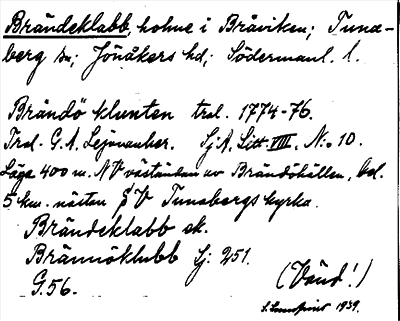 Brändeklabb, holme i Bråviken; Tuna-
berg sn; Jönåkers hd; Södermanl. l.
Brändö klunten trol. 1774-76.
Trol. G. A. Lejonanker. Sj A, Litt VIII, N:o 10.
Läge 400 m. NV väständan av Brändöhällen, bel.
5 km. nästan SV Tunabergs kyrka.
Brändeklabb ek.
Brännöklubb Sj: 251.
G. 56.
(Vänd!)
1939.